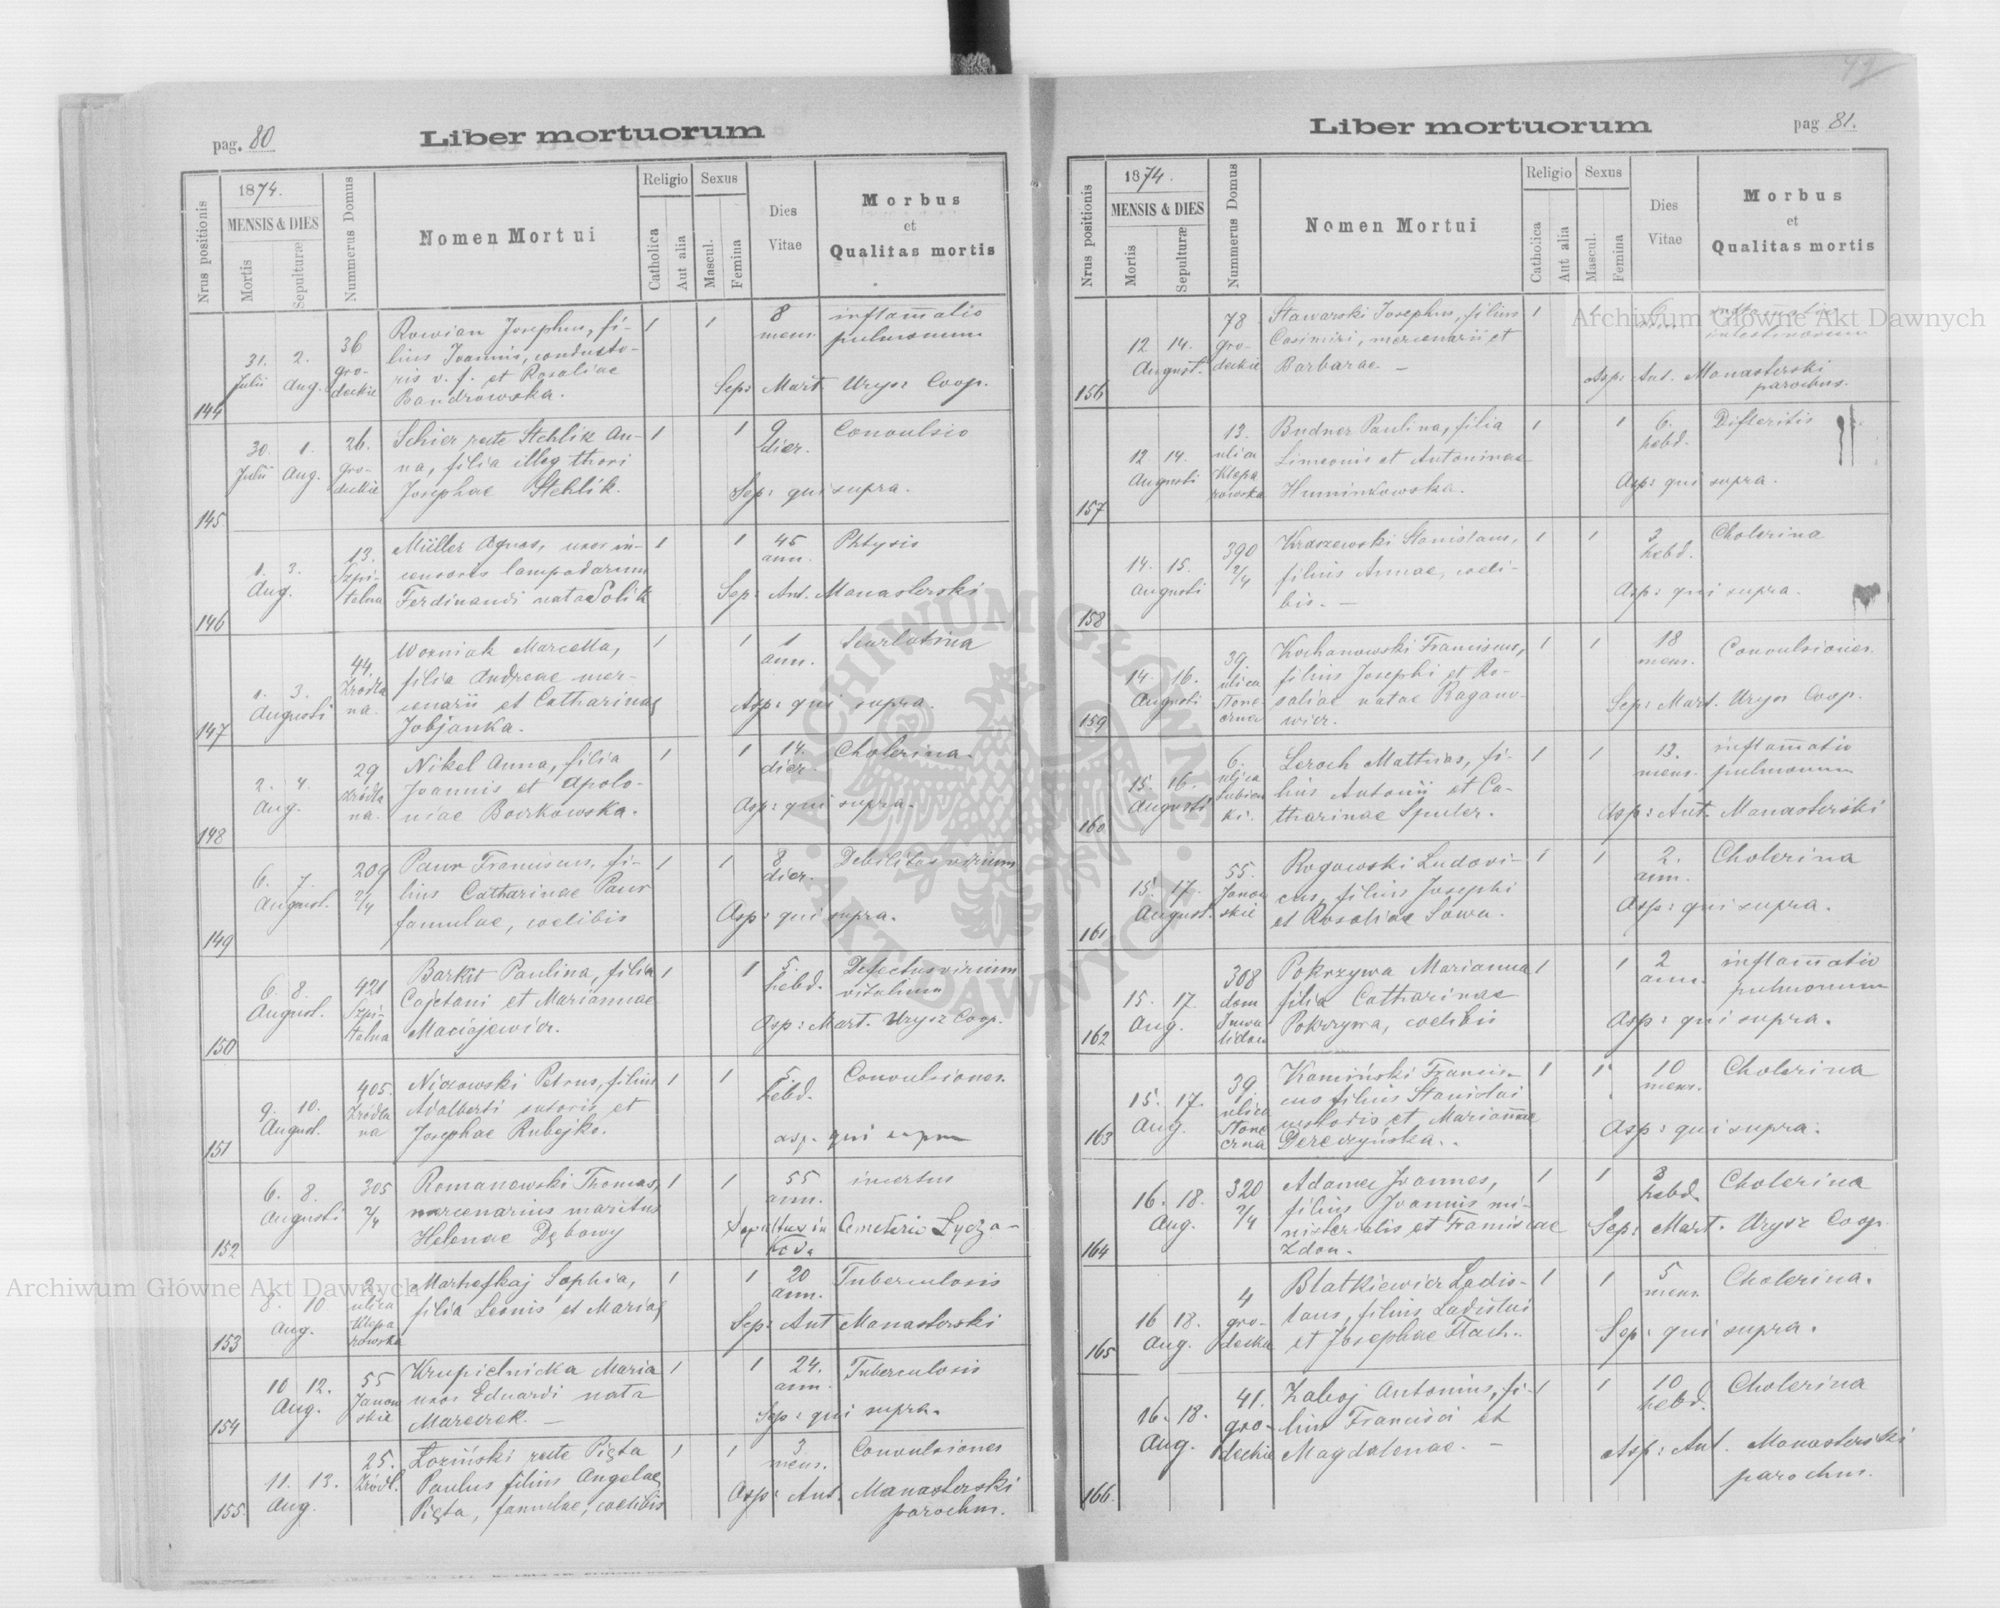 pag. 80
Liber mortuorum
Nrus positionis
1874.
MENSIS & DIES
Mortis
Sepulturæ
Nummerus Domus
Nomen Mortui
Religio
Catholica
Aut alia
Sexus
Mascul.
Femina
Dies
Vitae
Morbus
et
Qualitas mortis
144
31. 2.
Julii Aug.
36
gro-
deckie
Rowian Josephus, fi-
lius Joannis, conducto-
ris v. f. et Rosaliae
Bandrowska.
1 1
8
mens.
inflam̄atio
pulmonum
Sep: Mart. Urysz Coop.
145
30. 1.
Julii Aug.
26.
gro-
deckie
Schier recte Stehlik An-
na, filia illeg. thori
Josephae Stehlik.
1 1
9
dier.
Convulsio
Sep: qui supra.
146
1. 3.
Aug.
13.
Szpi-
talna
Müller Agnes, uxor in-
censoris lampadarum
Ferdinandi nata Polik
1 1
45
ann.
Phtysis
Sep: Ant. Manasterski
147
1. 3.
Augusti
44.
Zródla
na.
Woxniak Marcella,
filia Andreae mer-
cenarii et Catharinae
Jobjanka.
1 1
1
ann.
Scarlatina
Asp: qui supra.
148
2. 4.
Aug.
29
Zródla
na.
Nikel Anna, filia
Joannis et Apolo-
niae Borkowska.
1 1
14.
dier.
Cholerina.
Asp: qui supra.
149
6. 7.
August.
209
2/4
Paur Franciscus, fi-
lius Catharinae Paur
famulae, coelibis
1 1
8
dier.
Debilitas virium
Asp: qui supra.
150
6. 8.
August.
421
Szpi-
talna
Barkit Paulina, filia
Cajetani et Mariannae
Maciejewicz.
1 1
5.
hebd.
Defectus virium
vitalium
Asp: Mart. Urysz Coop.
151
9. 10.
August.
405.
Zródla
na
Nizowski Petrus, filius
Adalberti sutoris et
Josephae Rubejko.
1 1
5.
hebd.
Convulsiones.
asp. qui supra
152
6. 8.
Augusti
305
2/4
Romanowski Thomas,
mercenarius maritus
Helenae Dębowy
1 1
55
ann.
incertus
Sepultus in Cemeterio Łycza-
kow
153
8. 10
Aug.
2.
ulica
Klepa
rowska
Marhefkaj Sophia,
filia Leonis et Mariae
1 1
20
ann.
Tuberculosis
Sep: Ant Manasterski
154
10 12.
Aug.
55
Janow
skie
Krupielnicka Maria
uxor Eduardi nata
Marczek. —
1 1
24.
ann.
Tuberculosis
Sep: qui supra.
155.
11. 13.
Aug.
25.
Zródl.
Łoziński recte Pięta
Paulus filius Angelae
Pięta, famulae, coelibis
1 1
3
mens.
Convulsiones
Asp: Ant. Manasterski
parochus.
Liber mortuorum
pag 81.
Nrus positionis
1874.
MENSIS & DIES
Mortis
Sepulturæ
Nummerus Domus
Nomen Mortui
Religio
Catholica
Aut alia
Sexus
Mascul.
Femina
Dies
Vitae
Morbus
et
Qualitas mortis
156
12 14.
August.
78
gro-
deckie
Stawarski Josephus, filius
Casimiri, mercenarii et
Barbarae. —
1 1
6
inflam̄atio
intestinorum
Asp: Ant. Manasterski
parochus.
157
12. 14.
Augusti
13.
ulica
Klepa
rowska
Budner Paulina, filia
Simeonis et Antoninae
Huminkowska.
1 1
6.
hebd.
Difteritis
Asp: qui supra.
158
14. 15.
Augusti
390
2/4
Kraszewski Stanislaus,
filius Annae, coeli-
bis. —
1 1
3
hebd.
Cholerina
Asp: qui supra.
159
14. 16.
Augusti
39
ulica
Slone-
czna
Kochanowski Franciscus,
filius Josephi et Ro-
saliae natae Ragano-
wicz.
1 1
18
mens.
Convulsiones
Sep: Mart. Urysz Coop.
160
15. 16.
Augusti
6.
ulica
Lubien
ki.
Leroch Matthias, fi-
lius Antonii et Ca-
tharinae Spuler.
1 1
13.
mens.
inflam̄atio
pulmonum
Asp: Ant. Manasterski
161
15. 17.
August.
55.
Janow
skie
Rogowski Ludovi-
cus, filius Josephi
et Rosaliae Sowa.
1 1
2.
ann.
Cholerina
Asp: qui supra.
162
15. 17.
Aug.
308
dom
Inwa
lidow
Pokrzywa Marianna
filia Catharinae
Pokrzywa, coelibis
1 1
2
ann.
inflam̄atio
pulmonum
Asp: qui supra.
163
15. 17.
Aug.
39
ulica
Slone
czna
Kamiński Francis-
cus filius Stanislai
custodis et Mariannae
Dereczyńska.
1 1
10
mens.
Cholerina
Asp: qui supra.
164
16. 18.
Aug.
320
2/4
Adamec Joannes,
filius Joannis mi-
nisterialis et Franciscae
Zdon.
1 1
3
hebd.
Cholerina
Sep: Mart. Urysz Coop.
165
16 18.
Aug.
4
gro-
decka
Blatkiewicz Ladis-
laus, filius Ladislai
et Josephae Flach.
1 1
5
mens.
Cholerina.
Sep: qui supra.
166.
16. 18.
Aug.
41.
gro-
deckie
Zaboj Antonius, fi-
lius Francisci et
Magdalenae. —
1 1
10
hebd.
Cholerina
Asp: Ant. Manasterski
parochus.
Archiwum Główne Akt Dawnych
Archiwum Główne Akt Dawnych
ARCHIWUM GŁÓWNE
AKT DAWNYCH